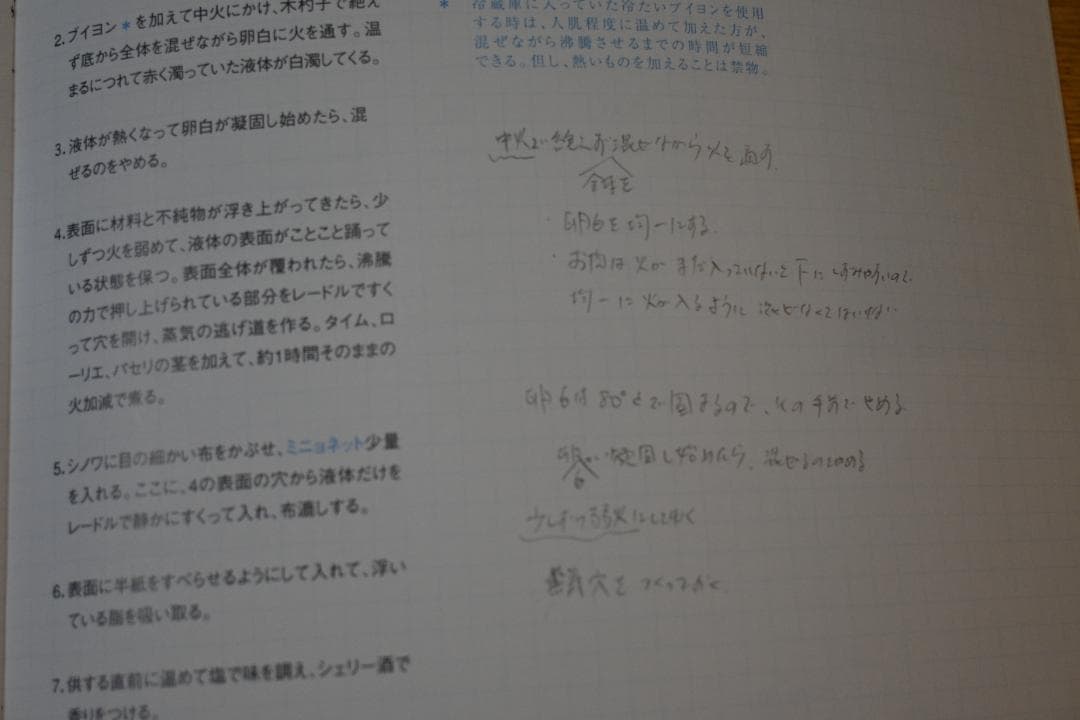 2.ブイヨン＊を加えて中火にかけ、木杓子で絶え
ず底から全体を混ぜながら卵白に火を通す。温
まるにつれて赤く濁っていた液体が白濁してくる。
3.液体が熱くなって卵白が凝固し始めたら、混
ぜるのをやめる。
4.表面に材料と不純物が浮き上がってきたら、少
しずつ火を弱めて、液体の表面がことこと踊って
いる状態を保つ。表面全体が覆われたら、沸騰
の力で押し上げられている部分をレードルですく
って穴を開け、蒸気の逃げ道を作る。タイム、ロ
ーリエ、パセリの茎を加えて、約1時間そのままの
火加減で煮る。
5.シノワに目の細かい布をかぶせ、ミニョネット少量
を入れる。ここに、4の表面の穴から液体だけを
レードルで静かにすくって入れ、布漉しする。
6.表面に半紙をすべらせるようにして入れて、浮い
ている脂を吸い取る。
7.供する直前に温めて塩で味を調え、シェリー酒で
香りをつける。
＊ 冷蔵庫に入っていた冷たいブイヨンを使用
する時は、人肌程度に温めて加えた方が、
混ぜながら沸騰させるまでの時間が短縮
できる。但し、熱いものを加えることは禁物。
中火で絶えず混ぜながら火を通す。
全体を
・卵白を均一にする。
・お肉は火がまだ入っていないと下にしずみやすいので
均一に火が入るように混ぜなくてはいけない
卵白は80°Cで固まるので、その手前でやめる
卵が凝固し始めたら、混ぜるのをやめる
白
少しずつ弱火にしておく
蒸気穴をつくっておく